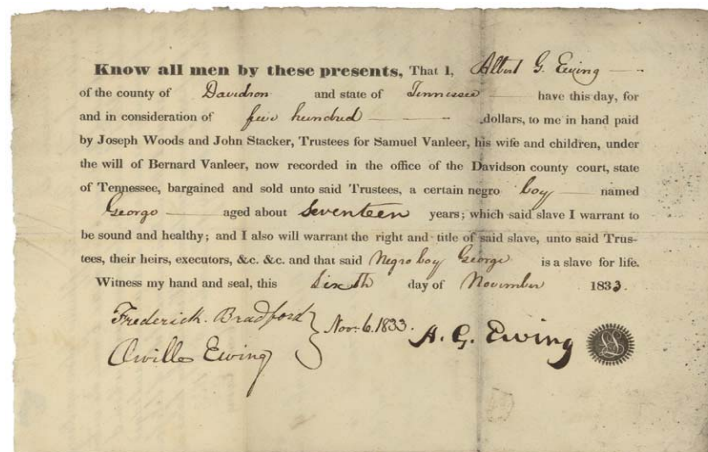 Know all men by these presents, That I, Albert G. Ewing
of the county of Davidson and state of Tennessee have this day, for
and in consideration of five hundred dollars, to me in hand paid
by Joseph Woods and John Stacker, Trustees for Samuel Vanleer, his wife and children, under
the will of Bernard Vanleer, now recorded in the office of the Davidson county court, state
of Tennessee, bargained and sold unto said Trustees, a certain negro boy named
George aged about Seventeen years; which said slave I warrant to
be sound and healthy; and I also will warrant the right and title of said slave, unto said Trus-
tees, their heirs, executors, &c. &c. and that said Negro boy George is a slave for life.
Witness my hand and seal, this Sixth day of November 1833.
Frederick Bradford
Orville Ewing
Nov. 6. 1833.
A. G. Ewing